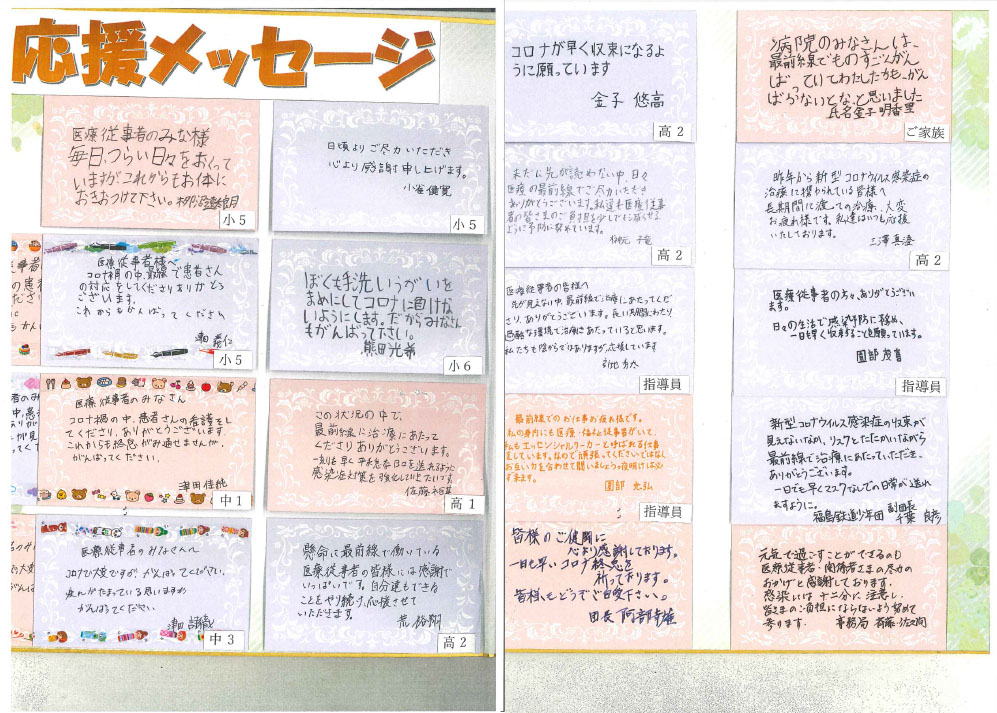 応援メッセージ
医療従事者のみな様
毎日、つらい日々をおくって
いますがこれからもお体に
おきおつけて下さい。
小5
日頃よりご尽力いただき
心より感謝申し上げます。
小5
医療従事者様へ
コロナ禍の中、最前線で患者さん
の対応をしてくださりありがとう
ございます。
これからもがんばってください
小5
ぼくも手洗いうがいを
まめにしてコロナに負けな
いようにします。だからみなさん
もがんばって下さい。
熊田光希
小6
医療従事者のみなさん
コロナ禍の中、患者さんの看護をし
てくださり、ありがとうございます。
これからも
がんばってください。
津田佳純
中1
この状況の中で、
最前線に治療にあたって
くださりありがとうございます。
一刻も早く平和な日々を送れるように
感染症対策を強化していきたいです。
高1
医療従事者のみなさんへ
コロナで大変ですが、がんばってください。
がんばってください。
中3
懸命に最前線で働いている
医療従事者の皆様には感謝で
いっぱいです。自分達もできる
ことをやり続け、応援させて
いただきます。
高2
コロナが早く収束になるよ
うに願っています
金子 悠高
高2
病院のみなさんは、
最前線でものすごくがん
ばっていてわたしたちも、がん
ばらないとな、と思いました
氏名金子明香里
ご家族
まだ先が読めない中、日々
医療の最前線でご尽力いただき
ありがとうございます。私達も医療従事
者の皆さまのご負担を少しでも減らせる
ように予防に努めています。
高2
昨年から新型コロナウイルス感染症の
治療に携わられている皆様へ
長期間に渡っての治療、大変
お疲れ様です。私達はいつも応援
いたしております。
三澤真澄
高2
医療従事者の皆様へ
先が見えない中、最前線で治療にあたってくだ
さり、ありがとうございます。長い期間にわたり
過酷な環境で治療にあたっていると思います。
私たちも陰からではありますが、応援しています
指導員
医療従事者の方々、ありがとうござい
ます。
日々の生活で感染予防に努め、
一日も早く収束することを願っています。
園部 茂喜
指導員
最前線でのお仕事お疲れ様です。
私の身内にも医療・福祉従事者がいて、
私もエッセンシャルワーカーと呼ばれる仕事
をしています。なので頑張ってくださいではなく
お互い力を合わせて闘いましょう。夜明けは必
ず来ます。
園部 光弘
指導員
新型コロナウィルス感染症の収束が
見えないなか、リスクとたたかいながら
最前線で治療にあたっていただき、
ありがとうございます。
一日でも早くマスクなしでの日常が送れ
ますように。
福島鉄道少年団 副団長
千葉 良彦
皆様のご健闘に
心より感謝しております。
一日も早いコロナ終息を
祈っております。
皆様もどうぞご自愛下さい。
団長 阿部寺雄
元気で過ごすことができるのも
医療従事者・関係者さまの尽力の
おかげと感謝しております。
感染しには十二分に注意し、
皆さまのご負担にならないよう努めて
参ります。 事務局 斎藤・佐久間